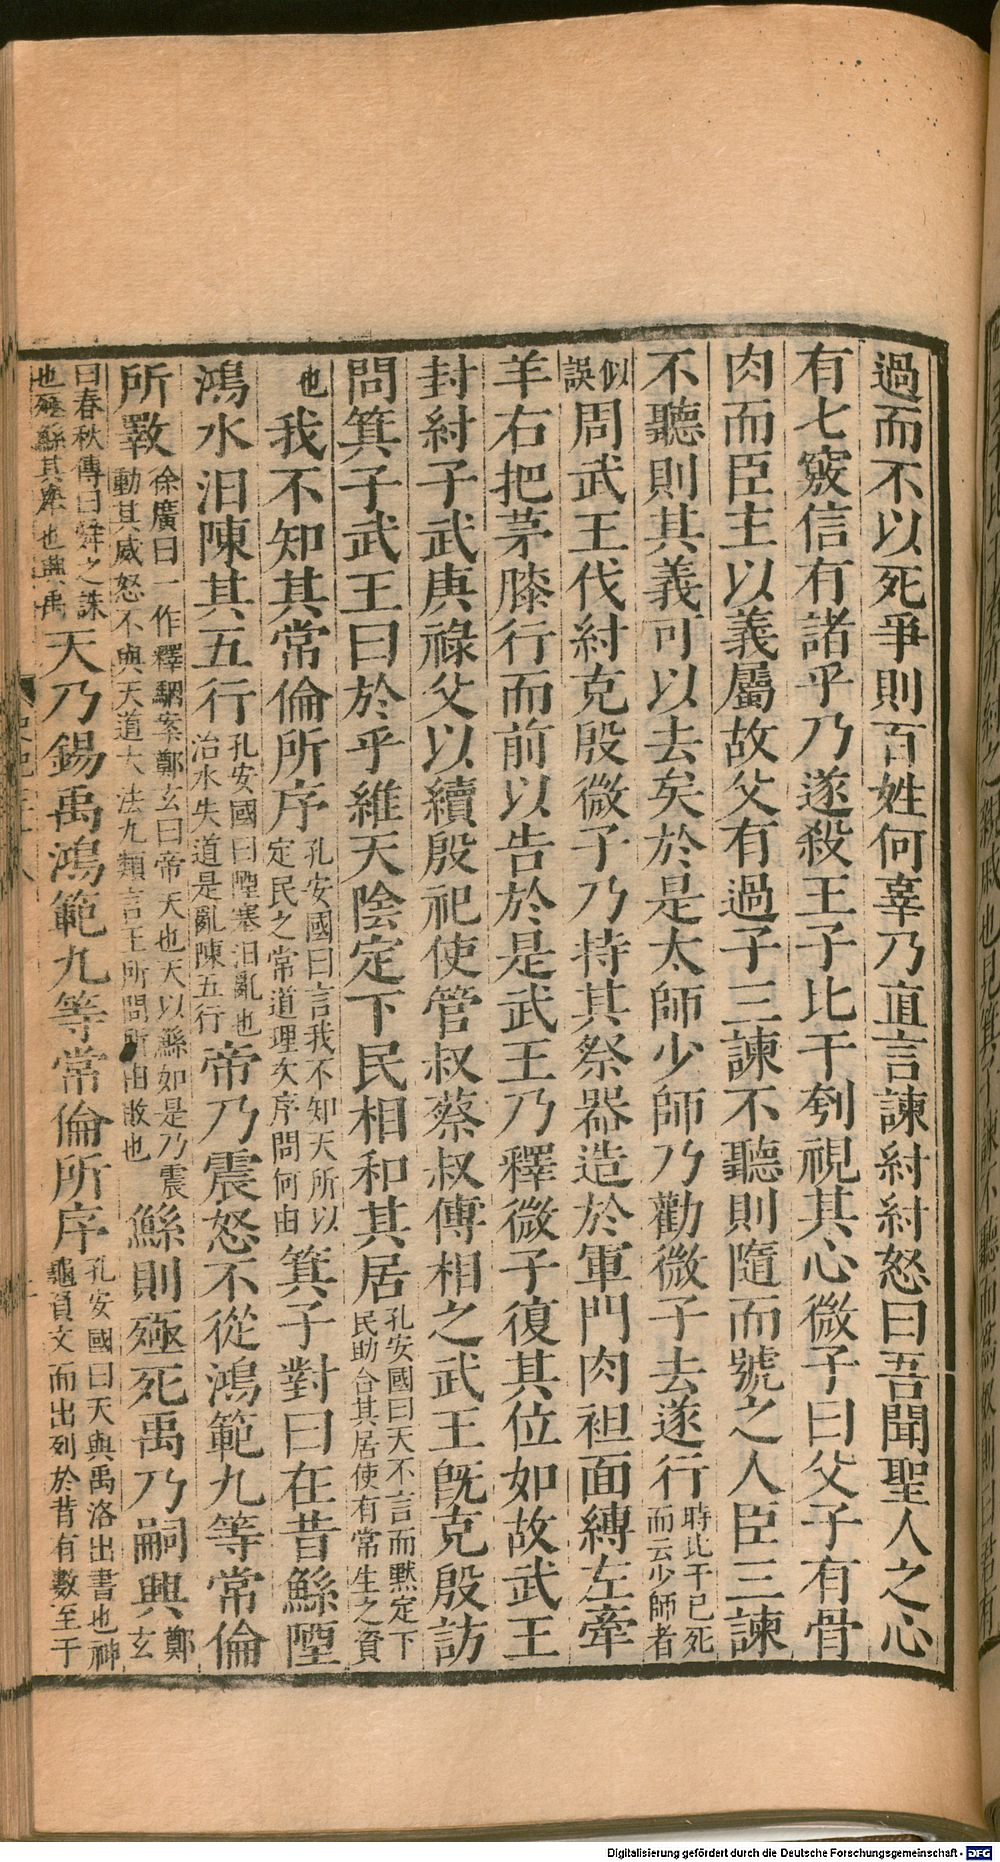 過而不以死爭則百姓何辜乃直言諫紂紂怒曰吾聞聖人之心
有七竅信有諸乎乃遂殺王子比干刳視其心微子曰父子有骨
肉而臣主以義屬故父有過子三諫不聽則隨而號之人臣三諫
不聽則其義可以去矣於是太師少師乃勸微子去遂行時比干已死而云少師者
似誤周武王伐紂克殷微子乃持其祭器造於軍門肉袒面縛左牽
羊右把茅膝行而前以告於是武王乃釋微子復其位如故武王
封紂子武庚祿父以續殷祀使管叔蔡叔傅相之武王旣克殷訪
問箕子武王曰於乎維天陰定下民相和其居孔安國曰天不言而默定下民助合其居使有常生之資
也我不知其常倫所序孔安國曰言我不知天所以定民之常道理次序問何由箕子對曰在昔鯀陻
鴻水汨陳其五行孔安國曰陻塞汨亂也治水失道是亂陳五行帝乃震怒不從鴻範九等常倫
所斁徐廣曰一作釋駰案鄭玄曰帝天也天以鯀如是乃震動其威怒不與天道大法九類言王所問所由敗也鯀則殛死禹乃嗣興鄭玄
曰春秋傳曰舜之誅也殛鯀其舉也興禹天乃錫禹鴻範九等常倫所序孔安國曰天與禹洛出書也神龜負文而出列於背有數至于
Digitalisierung gefördert durch die Deutsche Forschungsgemeinschaft - DFG